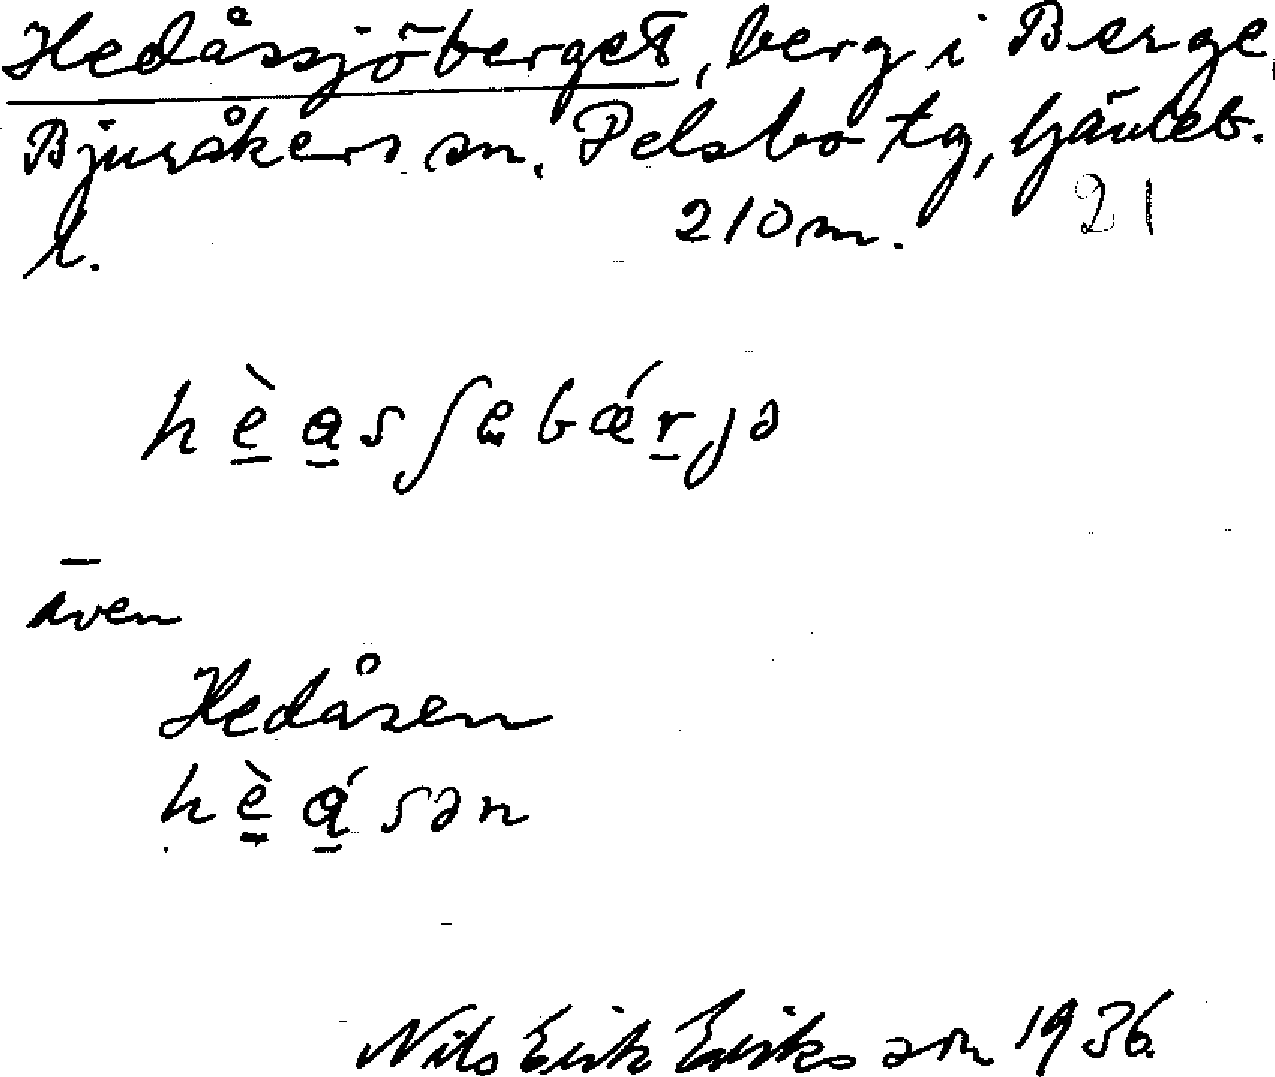 Hedåssjöberget, berg i Berge,
Bjuråkers sn. Delsbo tg, Gävleb.
l. 210 m. 21
hèasʃebǽrjə
även
Hedåsen
hèásən
Nils Erik Eriksson 1936.